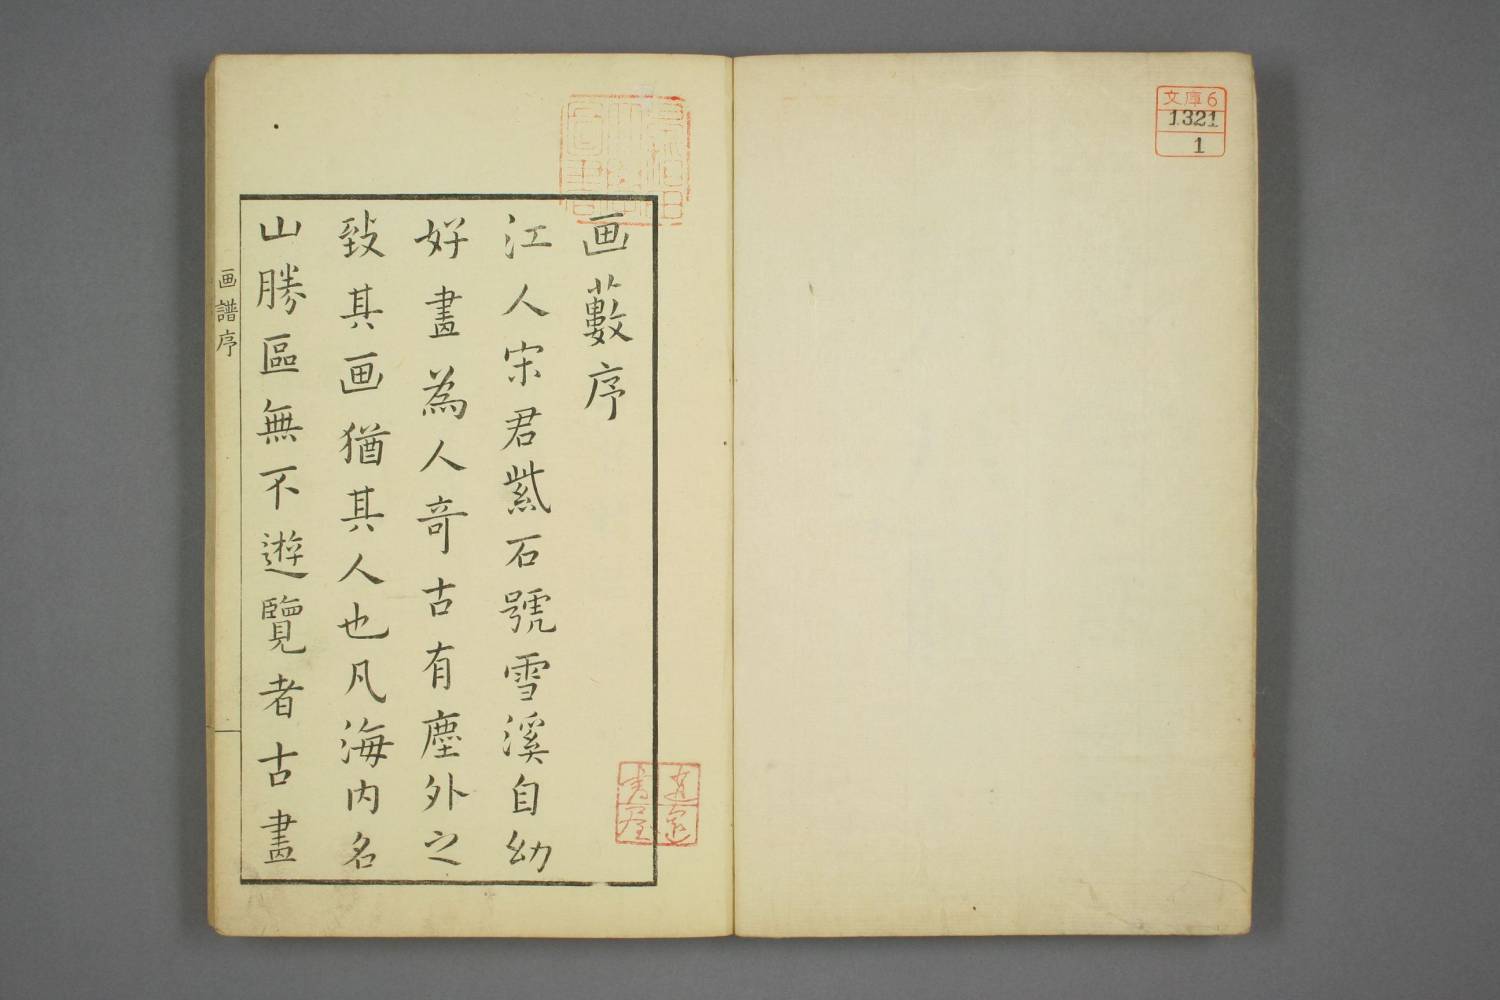 文庫6
1321
1
画藪序
江人宋君紫石號雪溪自幼
好畫為人奇古有塵外之
致其画猶其人也凡海内名
山勝區無不遊覽者古畫
画譜序